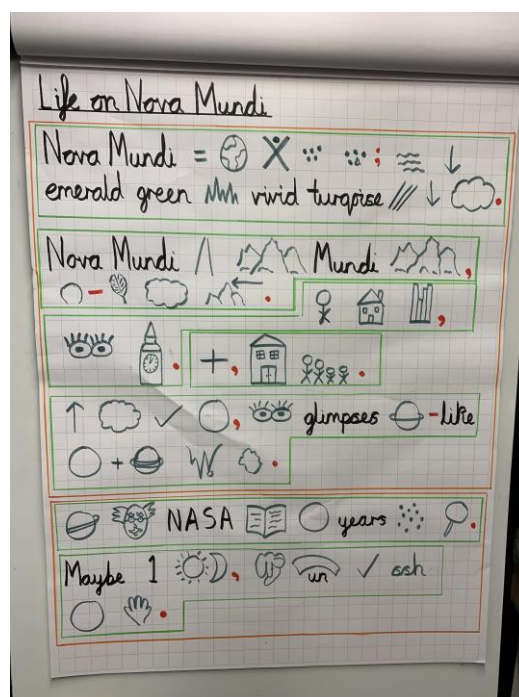 Life on Nova Mundi
Nova Mundi = ;
emerald green vivid turqoise .
Nova Mundi Mundi ,
- .
,
.
+ , .
, glimpses -like
+ .
NASA years .
Maybe 1 , un ssh
.